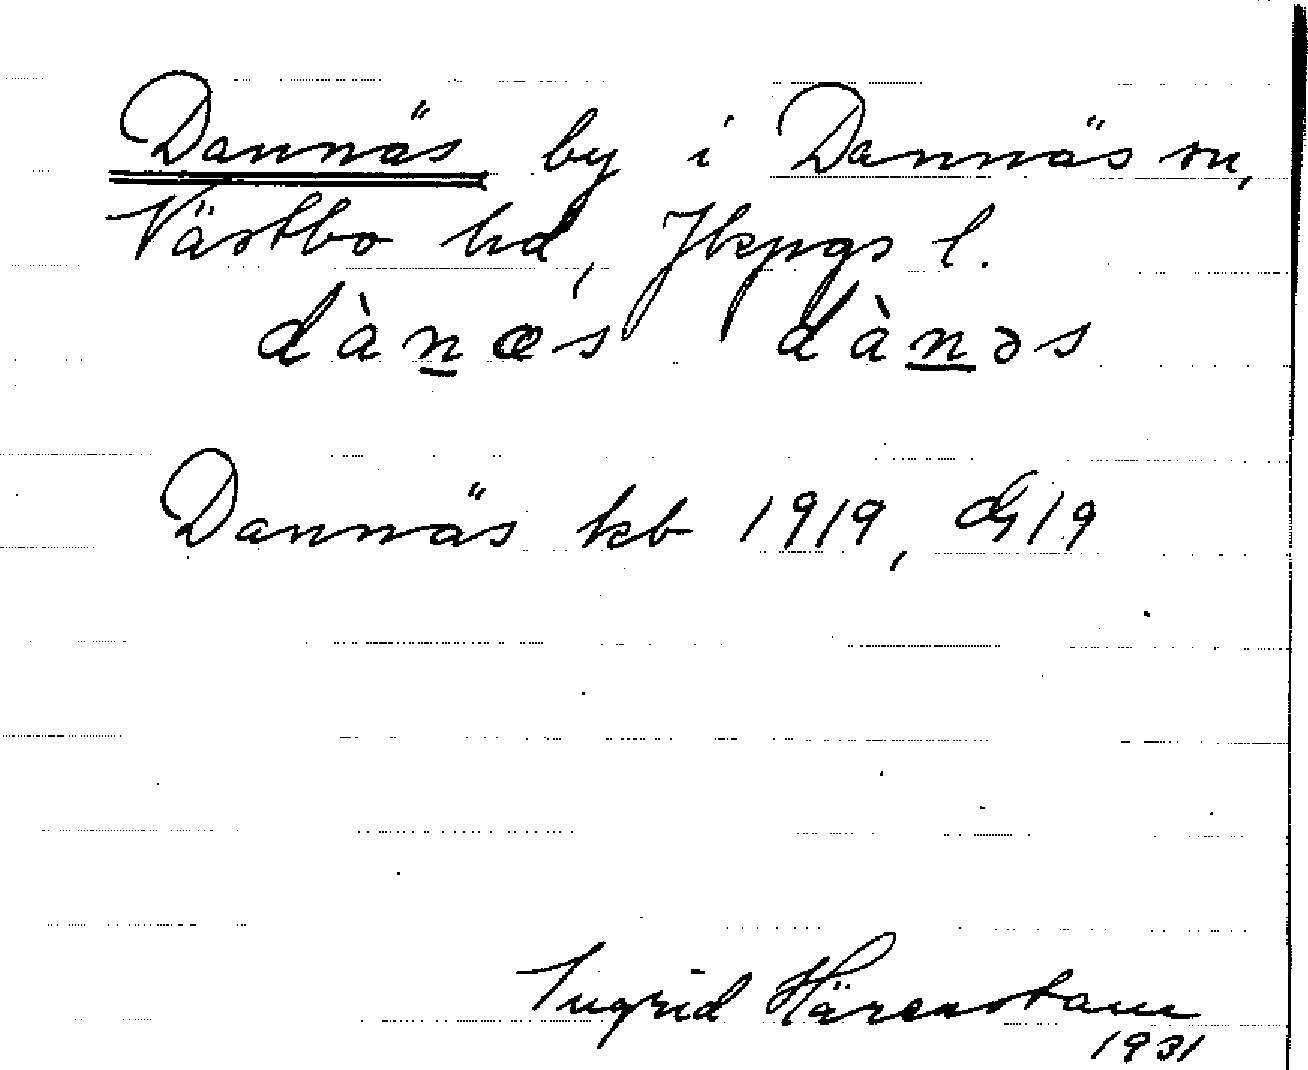 Dannäs by i Dannäs sn,
Västbo hd, Jkpgs l.
dànæs dànəs
Dannäs kb 1919, G 19
Ingrid Härenstam
1931